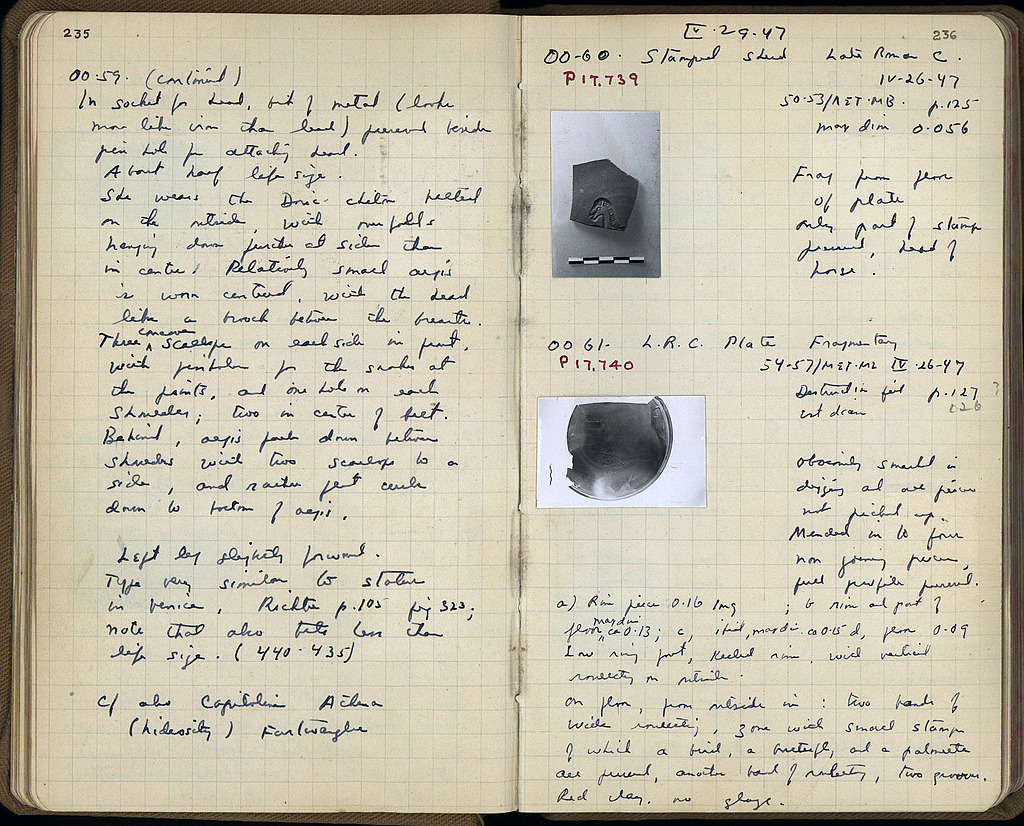 235
OO·59. (continued)
In socket for head, bit of metal (looks
more like iron than lead) preserved beside
pin hole for attaching head.
About half life size.
She wears the Doric chiton belted
on the outside, with overfolds
hanging down further at sides than
in center. Relatively small aegis
is worn centered, with the head
like a brooch between the breasts.
Three concave scallops on each side in front,
with pinholes for the snakes at
the points, and one hole on each
shoulder; two in center of belt.
Behind, aegis falls down between
shoulders with two scallops to a
side, and rather flat
down to bottom of aegis.
Left leg slightly forward.
Type very similar to statue
in Venice, Richter p. 105 fig 323;
note that also little less than
life size. (440-435)
Cf also Capitoline Athena
(hideosity) Furtwangler
IV·29·47
236
OO-60. Stamped sherd Late Roman C.
P17,739
IV-26-47
50-53/ΛΣΤ·MB. p.125
max dim 0.056
Frag from floor
of plate
only part of stamp
preserved, head of
horse.
OO 61- L.R.C. Plate Fragmentary
P17,740
54-57/ΜΣΤ·ΜΖ IV·26·47
Destruction fill p.127 ?
126
Obviously smashed in
digging and one piece
not picked up.
Mended in to four
non joining pieces,
full profile preserved.
a) Rim piece 0.16 long; b rim and part of
floor, max dim ca 0.13; c, ibid, max dim. ca 0.15 d, floor 0.09
Low ring foot, rim, with vertical
rouletting on outside.
On floor, from outside in: two bands of
wide rouletting, zone with small stamps
of which a bird, a butterfly, and a palmette
are preserved, another band of rouletting, two grooves.
Red clay. no glaze.